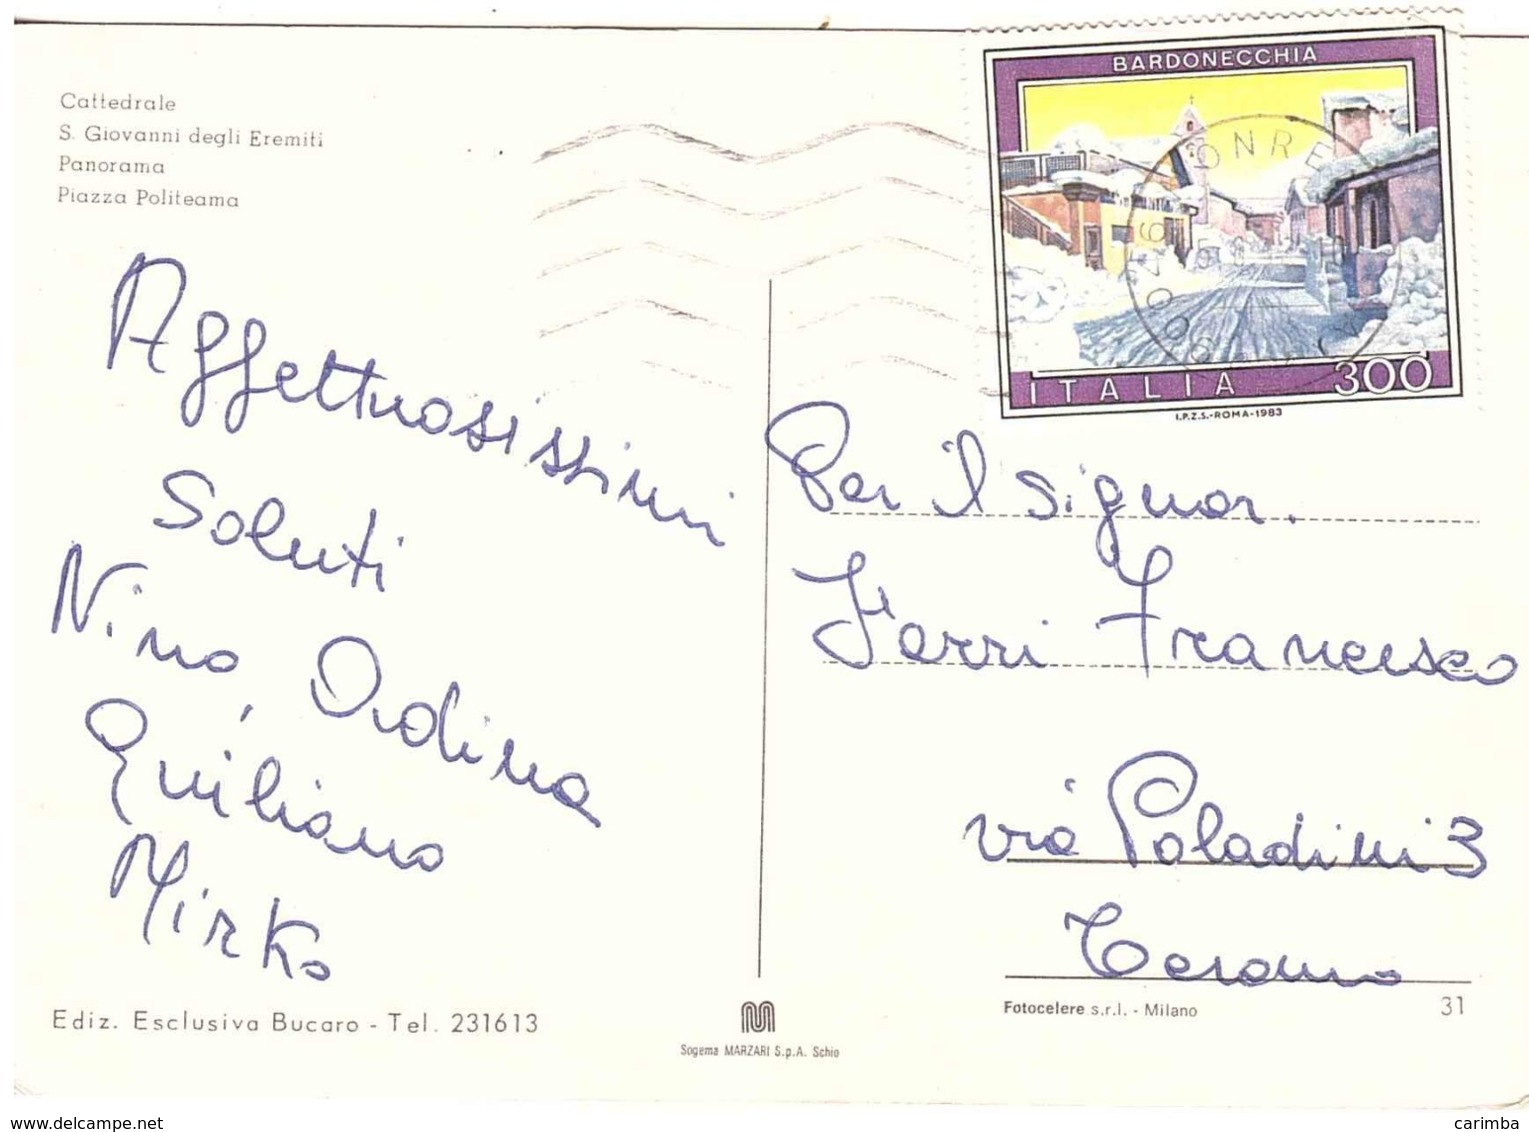 Cattedrale
S. Giovanni degli Eremiti
Panorama
Piazza Politeama
BARDONECCHIA
ITALIA 300
I.P.Z.S.-ROMA-1983
ONRE
Affettuosissimi
Saluti
Nino, Ordina
Quiliano
Mirko
Per il signor.
Ferri Francesco
via Paladini 3
Teramo
Ediz. Esclusiva Bucaro - Tel. 231613
Sogema MARZARI S.p.A. Schio
Fotocelere s.r.l. - Milano
31
delcampe.net
carimba